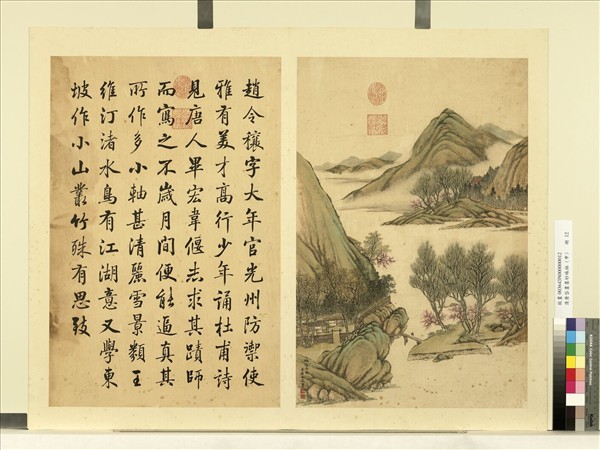 趙令穰字大年官光州防禦使
雅有美才高行少年誦杜甫詩
見唐人畢宏韋偃志求其蹟師
而寫之不歲月間便能逼真其
所作多小軸甚清麗雪景類王
維汀渚水鳥有江湖意又學東
坡作小山叢竹殊有思致